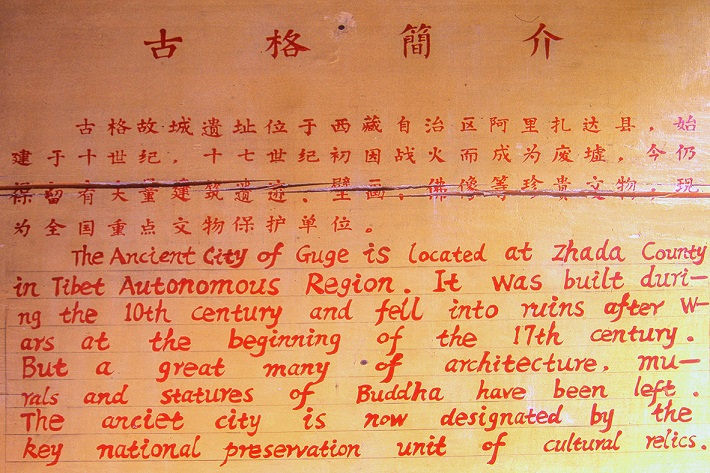 古格簡介
古格故城遺址位于西藏自治区阿里扎达县，始
建于十世纪，十七世纪初因战火而成为废墟，今仍
保留有大量建筑遗迹、壁画、佛像等珍贵文物，现
为全国重点文物保护单位。
The Ancient City of Guge is located at Zhada County
in Tibet Autonomous Region. It was built duri-
ng the 10th century and fell into ruins after w-
ars at the beginning of the 17th century.
But a great many of architecture, mu-
rals and statures of Buddha have been left.
The anciet city is now designated by the
key national preservation unit of cultural relics.